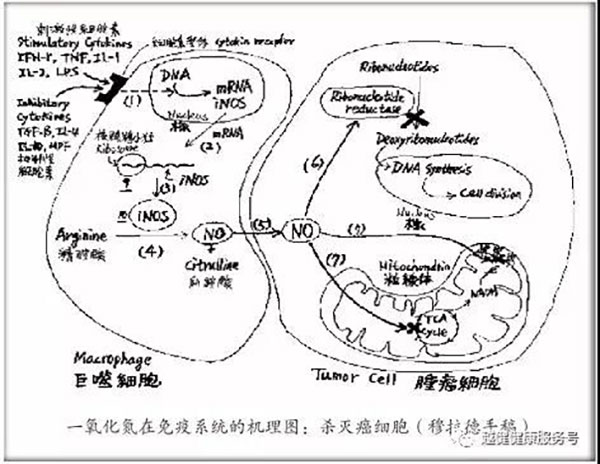 刺激性細胞素
Stimulatory Cytokines
IFN-r, TNF, IL-1
IL-2, LPS
Cytokin receptor
Inhibitory
Cytokines
TGF-B, IL-4
IL-10, MPF
抑制性
細胞素
(1)
DNA
mRNA
iNOS
Nucleus
核
(2)
mRNA
Ribosome
iNOS
(3)
iNOS
Arginine
精胺酸
(4)
NO
+
Citrulline
瓜胺酸
(5)
NO
Macrophage
巨噬細胞
Ribonucleotides
Ribonucleotide
reductase
(6)
Deoxyribonucleotides
DNA Synthesis
Cell division
Nucleus
核
(7)
(7)
Mitochondrin
粒線体
TCA
Cycle
Tumor Cell 腫瘤細胞
一氧化氮在免疫系统的机理图：杀灭癌细胞（穆拉德手稿）
越健健康服务号